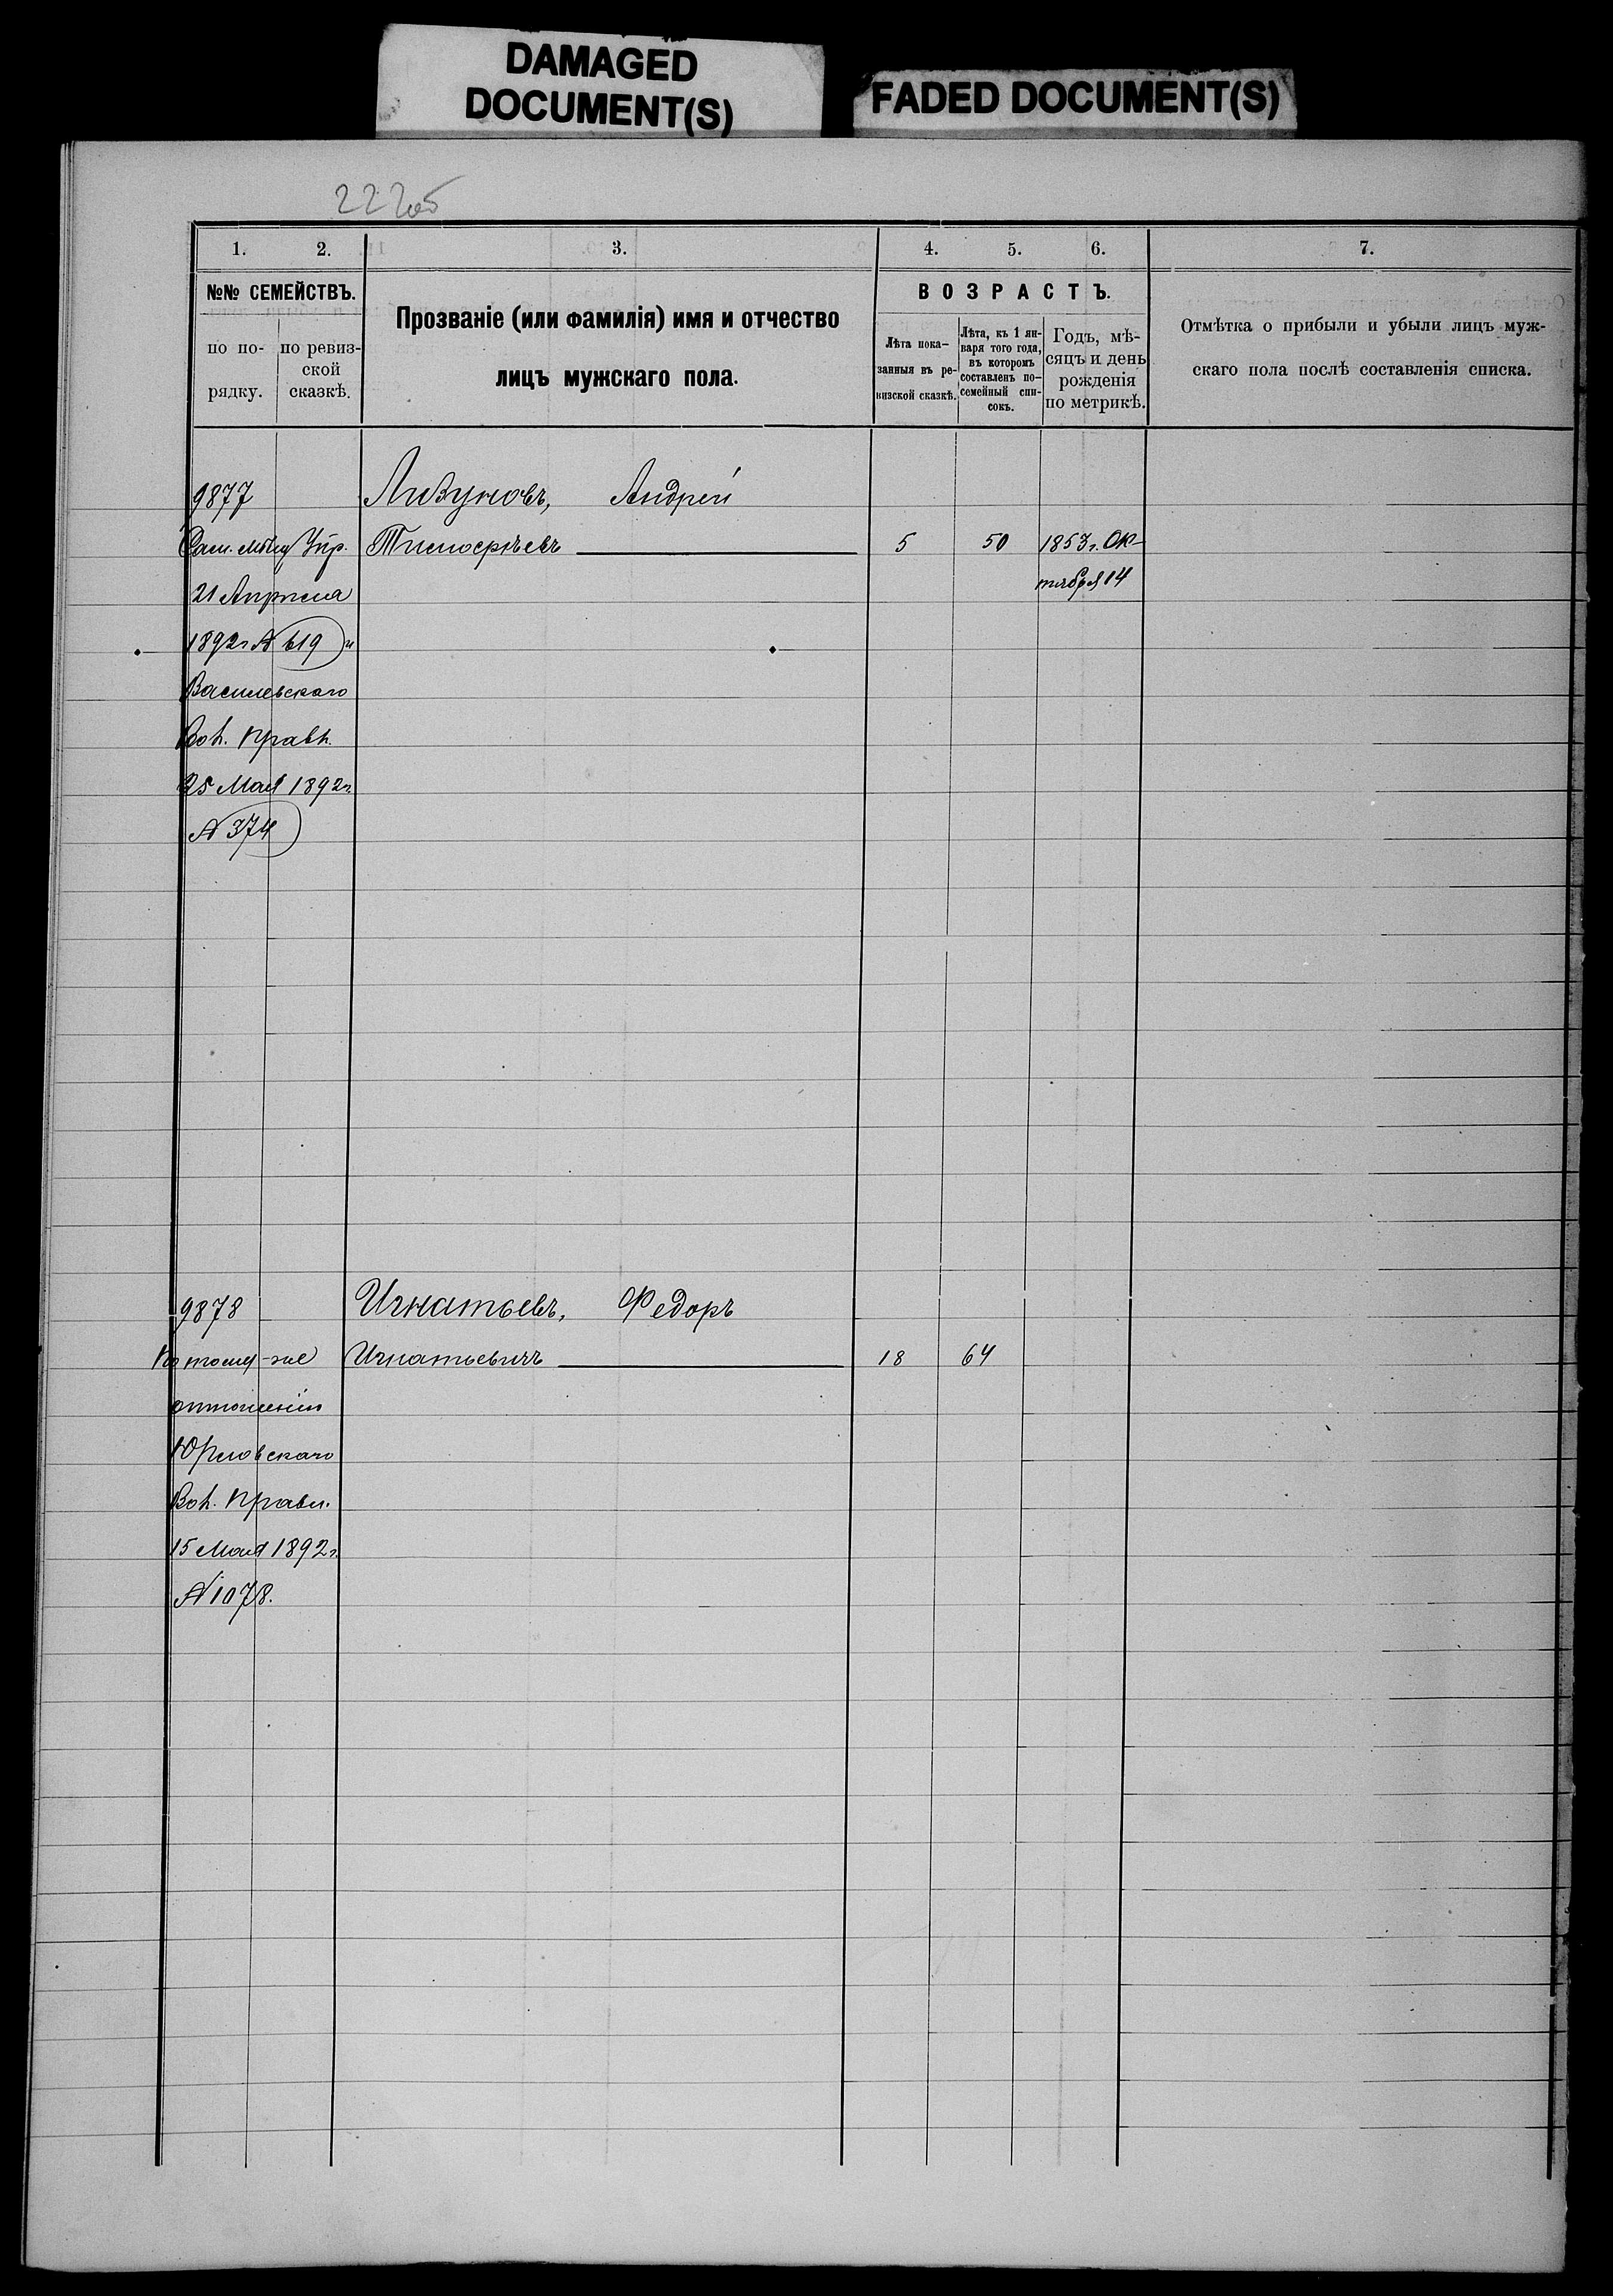 DAMAGED
DOCUMENT(S)
FADED DOCUMENT(S)
222об
1. 2. 3. 4. 5. 6. 7.
№№ СЕМЕЙСТВЪ.
по по-
рядку.
по ревиз-
ской
сказкѣ.
Прозваніе (или фамилія) имя и отчество
лицъ мужскаго пола.
ВОЗРАСТЪ.
Лѣта пока-
занныя въ ре-
визской сказкѣ.
Лѣта, къ 1 ян-
варя того года,
въ которомъ
составленъ по-
семейный спи-
сокъ.
Годъ, мѣ-
сяцъ и день
рожденія
по метрикѣ.
Отмѣтка о прибыли и убыли лицъ муж-
скаго пола послѣ составленія списка.
9877 Лизуновъ, Андрей
Упр. Тимофѣевъ 5 50 1853 г. Ок-
тября 14
21 Апрѣля
1892 г. № 619 и
Василевскаго
Вол. Правл.
25 Мая 1892 г.
№ 374
9878 Игнатьевъ, Федоръ
По тому-же Игнатьевичъ 18 64
отношенію
Юрловскаго
Вол. Правл.
15 Мая 1892 г.
№ 1078.